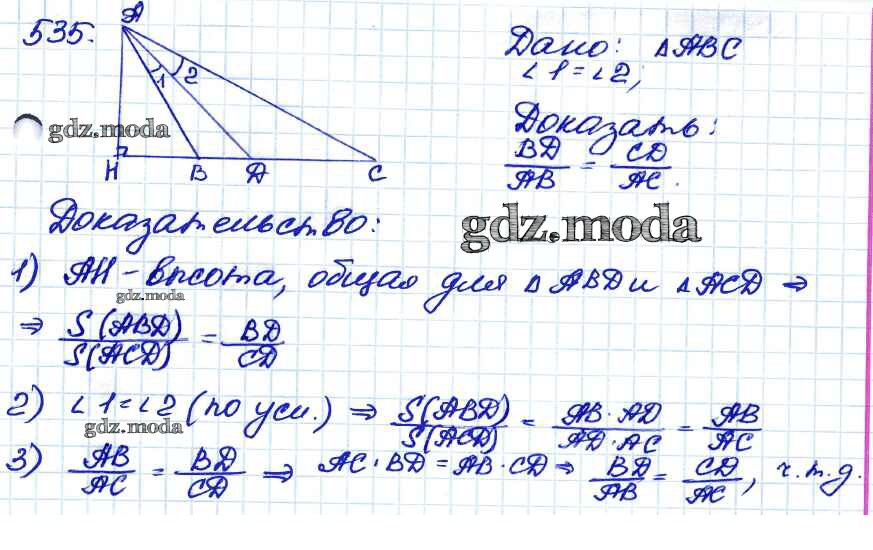 535.
A
1 2
H B D C
Дано: △ABC
∠1=∠2;
Доказать:
BD/AB = CD/AC.
gdz.moda
gdz.moda
Доказательство:
1) AH – высота, общая для △ABD и △ACD ⇒
gdz.moda
⇒ S(ABD)/S(ACD) = BD/CD
2) ∠1=∠2 (по усл.) ⇒ S(ABD)/S(ACD) = AB·AD/AD·AC = AB/AC
gdz.moda
3) AB/AC = BD/CD ⇒ AC·BD = AB·CD ⇒ BD/AB = CD/AC, ч.т.д.